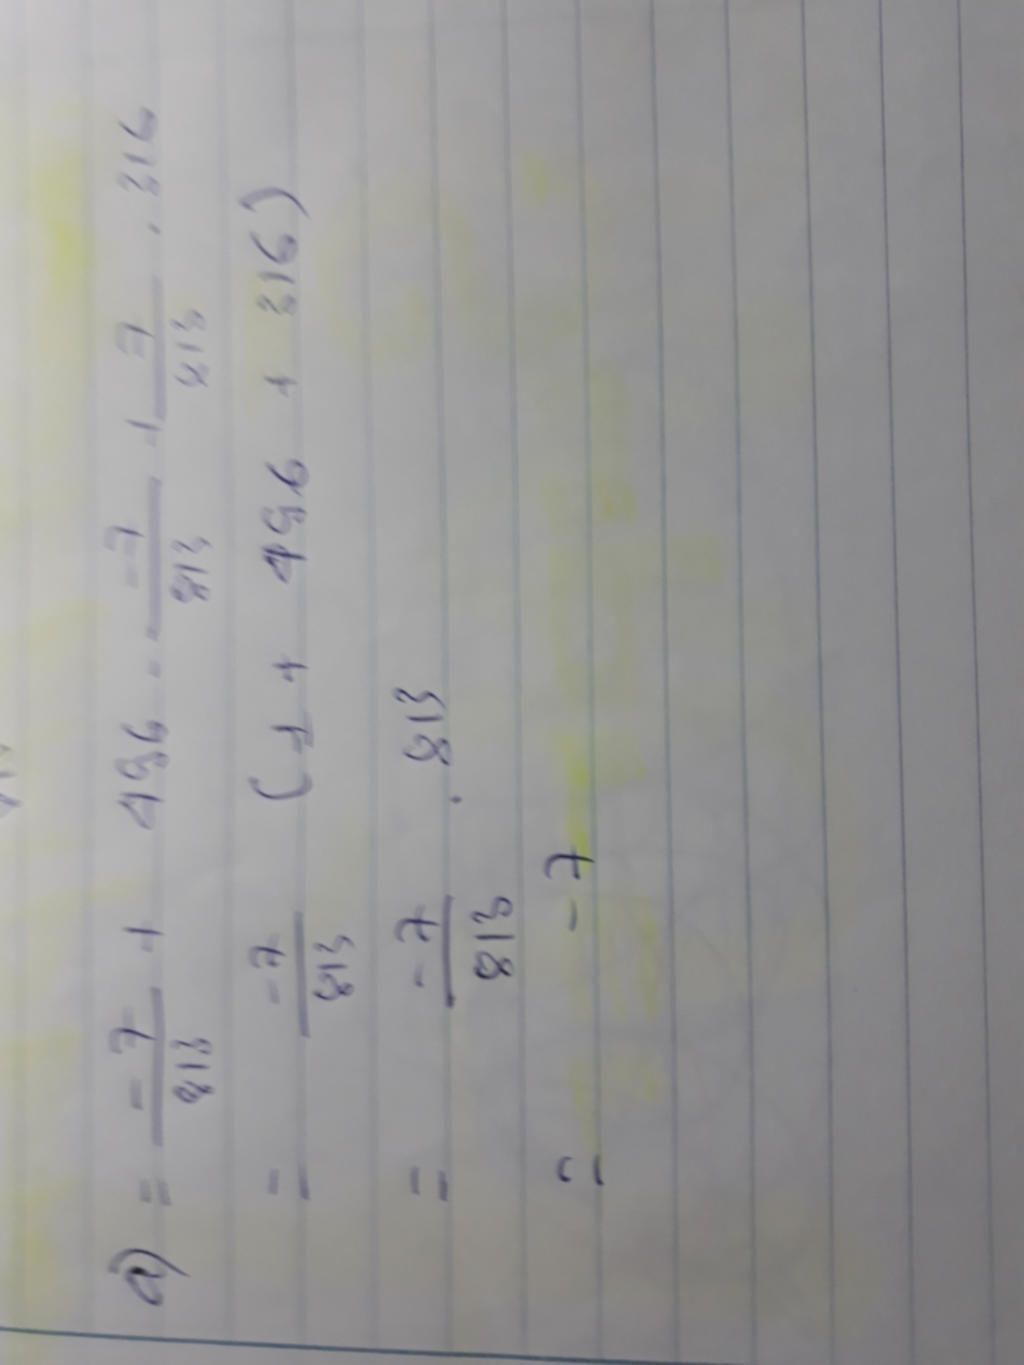 a) = -7/813 + 496 . -7/813 + -7/813 . 316
= -7/813 (1 + 496 + 316)
= -7/813 . 813
= -7